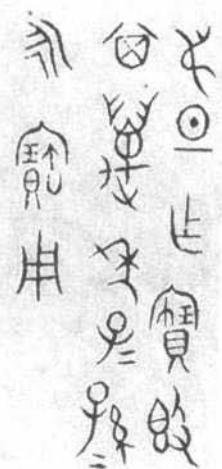 旦乍寶𣪘
其萬年子=孫=
永寶用